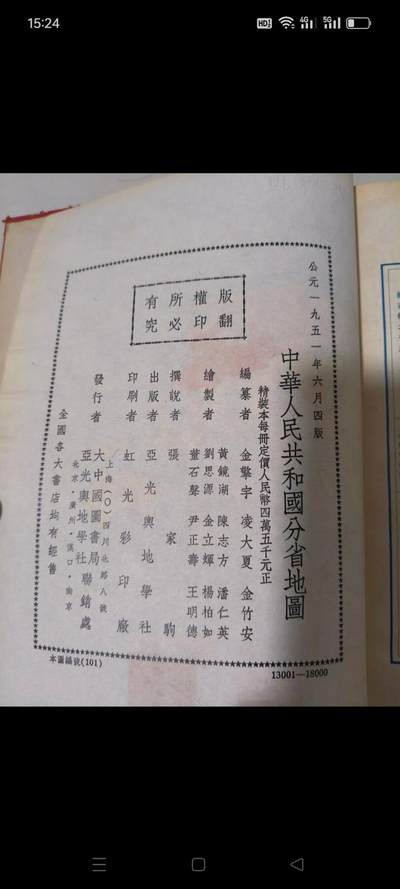 15:24
公元一九五一年六月四版
中華人民共和國分省地圖
精裝本每冊定價人民幣四萬五千元正
版權所有
翻印必究
編纂者 金擎宇 凌大夏 金竹安
繪製者 黃鏡湖 陳志方 潘仁英
劉思源 金立煇 楊柏如
董石聲 尹正壽 王明德
撰說者 張家駒
出版者 亞光輿地學社
印刷者 虹光彩印廠
發行者 大中國圖書局
亞光輿地學社 聯銷處
上海(0)四川北路八號
北京·廣州·漢口·南京
全國各大書店均有經售
本圖編號(101)
13001—18000